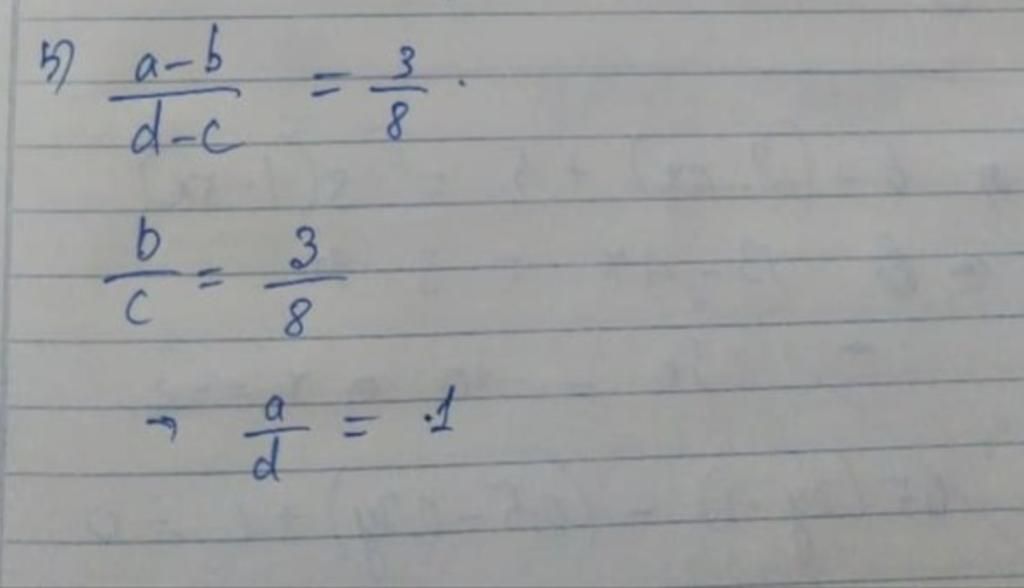 5) a-b / d-c = 3/8 .
b/c = 3/8
→ a/d = .1